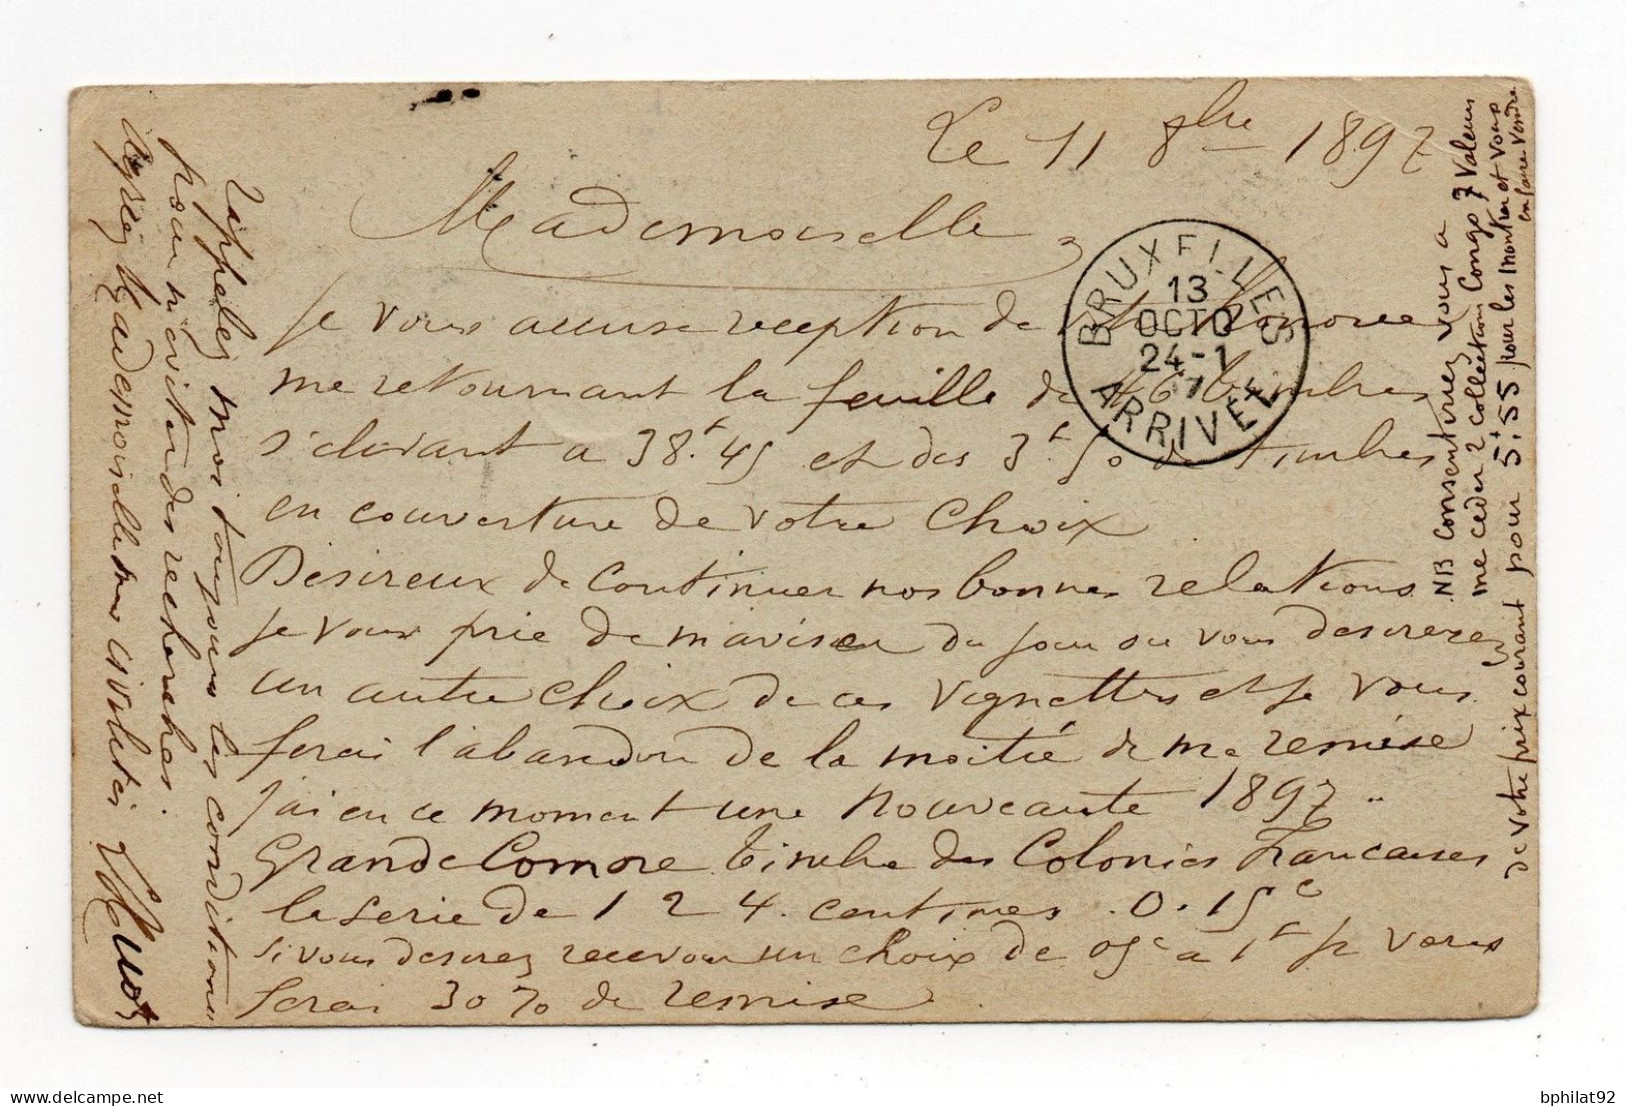 Le 11 8bre 1897
Mademoiselle,
Je vous accuse reception de votre honoree
me retournant la feuille de 46 timbres
s'elevant a 38.f45 et des 3.f50 de timbres
en couverture de votre choix
Desireux de continuer nos bonnes relations
je vous prie de m'aviser du jour ou vous desirerez
un autre choix de ces vignettes et je vous
ferai l'abandon de la moitié de ma remise
J'ai en ce moment une nouveaute 1897 ..
Grande Comore timbre des Colonies Francaises
la serie de 1 2 4. centimes . 0.15c
si vous desirez recevoir un choix de 05c a 1f je vous
ferai 30% de remise
rappelez moi toujours les conditions
pour m'eviter des recherches.
Agréez Mademoiselle mes civilités
NB Consentiriez vous a
me ceder 2 collection Congo 7 valeurs
de votre prix courant pour 5f.55 pour les montrer et vous
en faire vendre
BRUXELLES
13
OCTO
24-1
97
ARRIVEE
delcampe.net
bphilat92